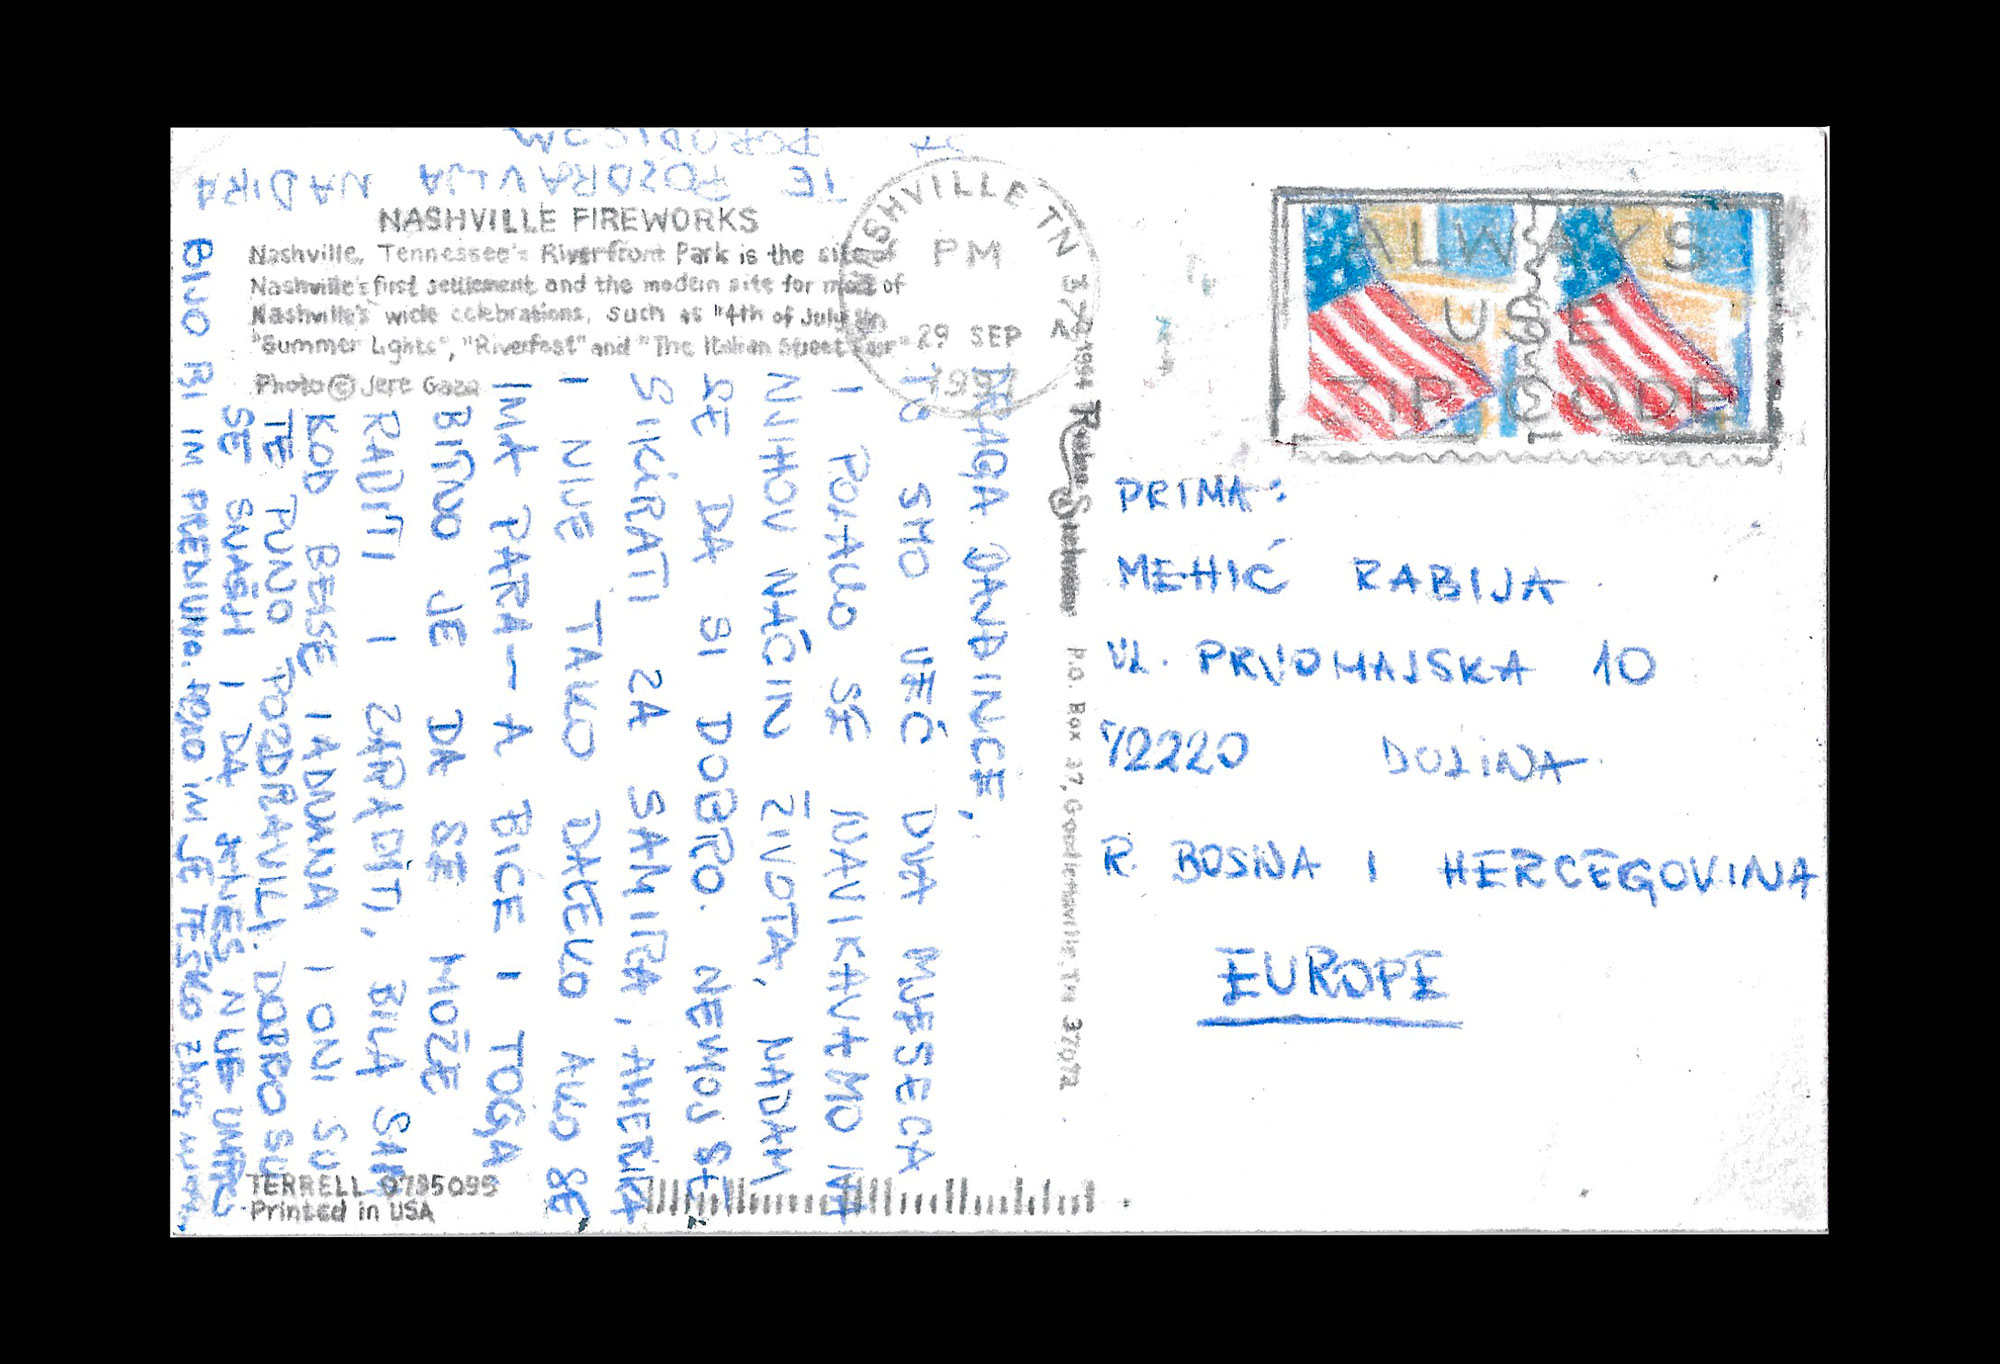 NASHVILLE FIREWORKS
Nashville, Tennessee's Riverfront Park is the site of
Nashville's first settlement and the modern site for most of
Nashville's wide celebrations, such as "4th of July" in
"Summer Lights", "Riverfest" and "The Italian Street Fair"
Photo © Jere Gaza
NASHVILLE TN
PM
29 SEP
ALWAYS
USE
ZIP CODE
DRAGA
TU SMO VEĆ DVA MJESECA
I POLAKO SE NAVIKAVAMO NA
NJIHOV NAČIN ŽIVOTA, NADAM
SE DA SI DOBRO. NEMOJ SE
SIKIRATI ZA SAMIRA, AMERIKA
I NIJE TAKO DALEKO AKO SE
IMA PARA - A BIĆE I TOGA
BITNO JE DA SE MOŽE
RADITI I ZARADITI, BILA SAM
KOD BEJSE I ADNANA I ONI SU
TE PUNO POZDRAVILI. DOBRO SU
SE SNAŠLI I DA NIJE UMRO
BILO BI IM PREDIVNO.
IM JE TEŠKO ZBOG
NADIRA
TE POZDRAVLJA
SA PORODICOM
© 1994
P.O. Box 37, Goodlettsville, TN 37072
TERRELL 0795095
Printed in USA
PRIMA:
MEHIĆ RABIJA
UL. PRVOMAJSKA 10
72220 DOLINA
R. BOSNA I HERCEGOVINA
EUROPE